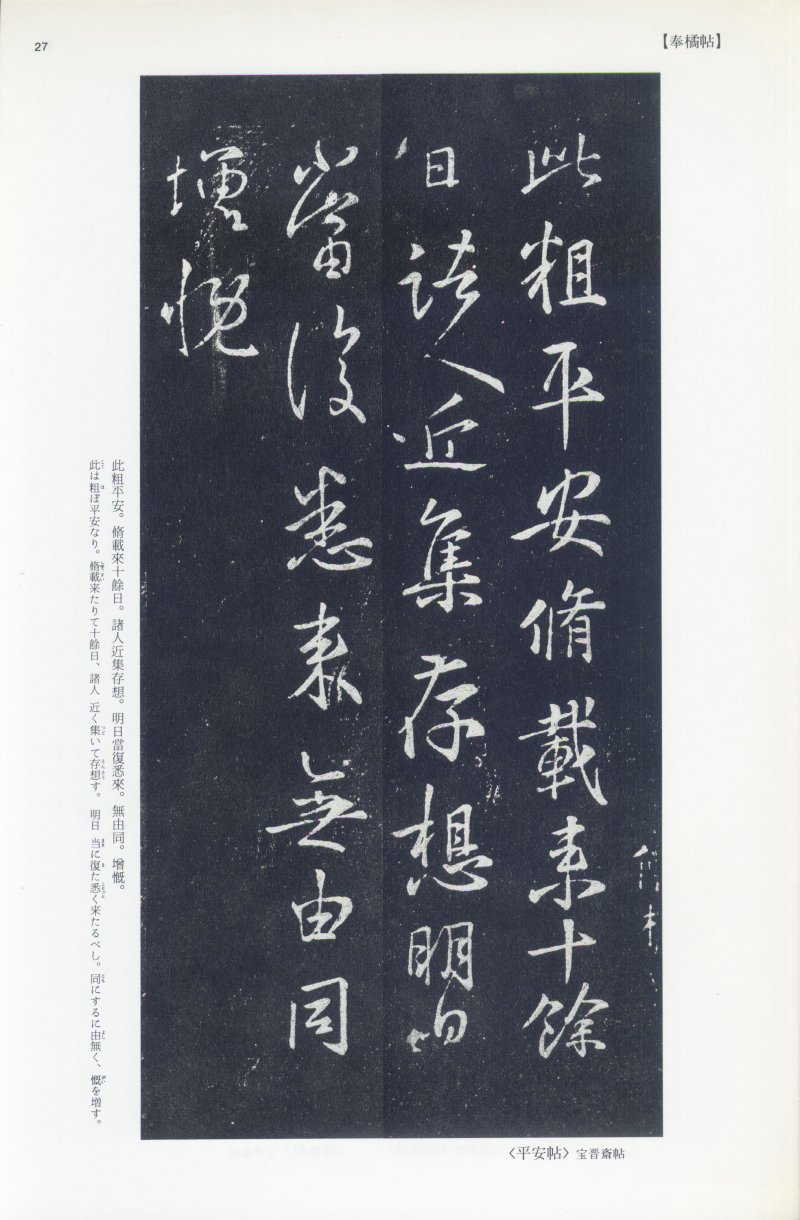 27
【奉橘帖】
此粗平安脩載来十餘
日諸人近集存想明日
當復悉来無由同
增慨
〈平安帖〉宝晋斎帖
此粗平安。脩載來十餘日。諸人近集存想。明日當復悉來。無由同。增慨。
此は粗ぼ平安なり。脩載来たりて十餘日、諸人 近く集いて存想す。明日 当に復た悉く来たるべし。同にするに由無く、慨を増す。